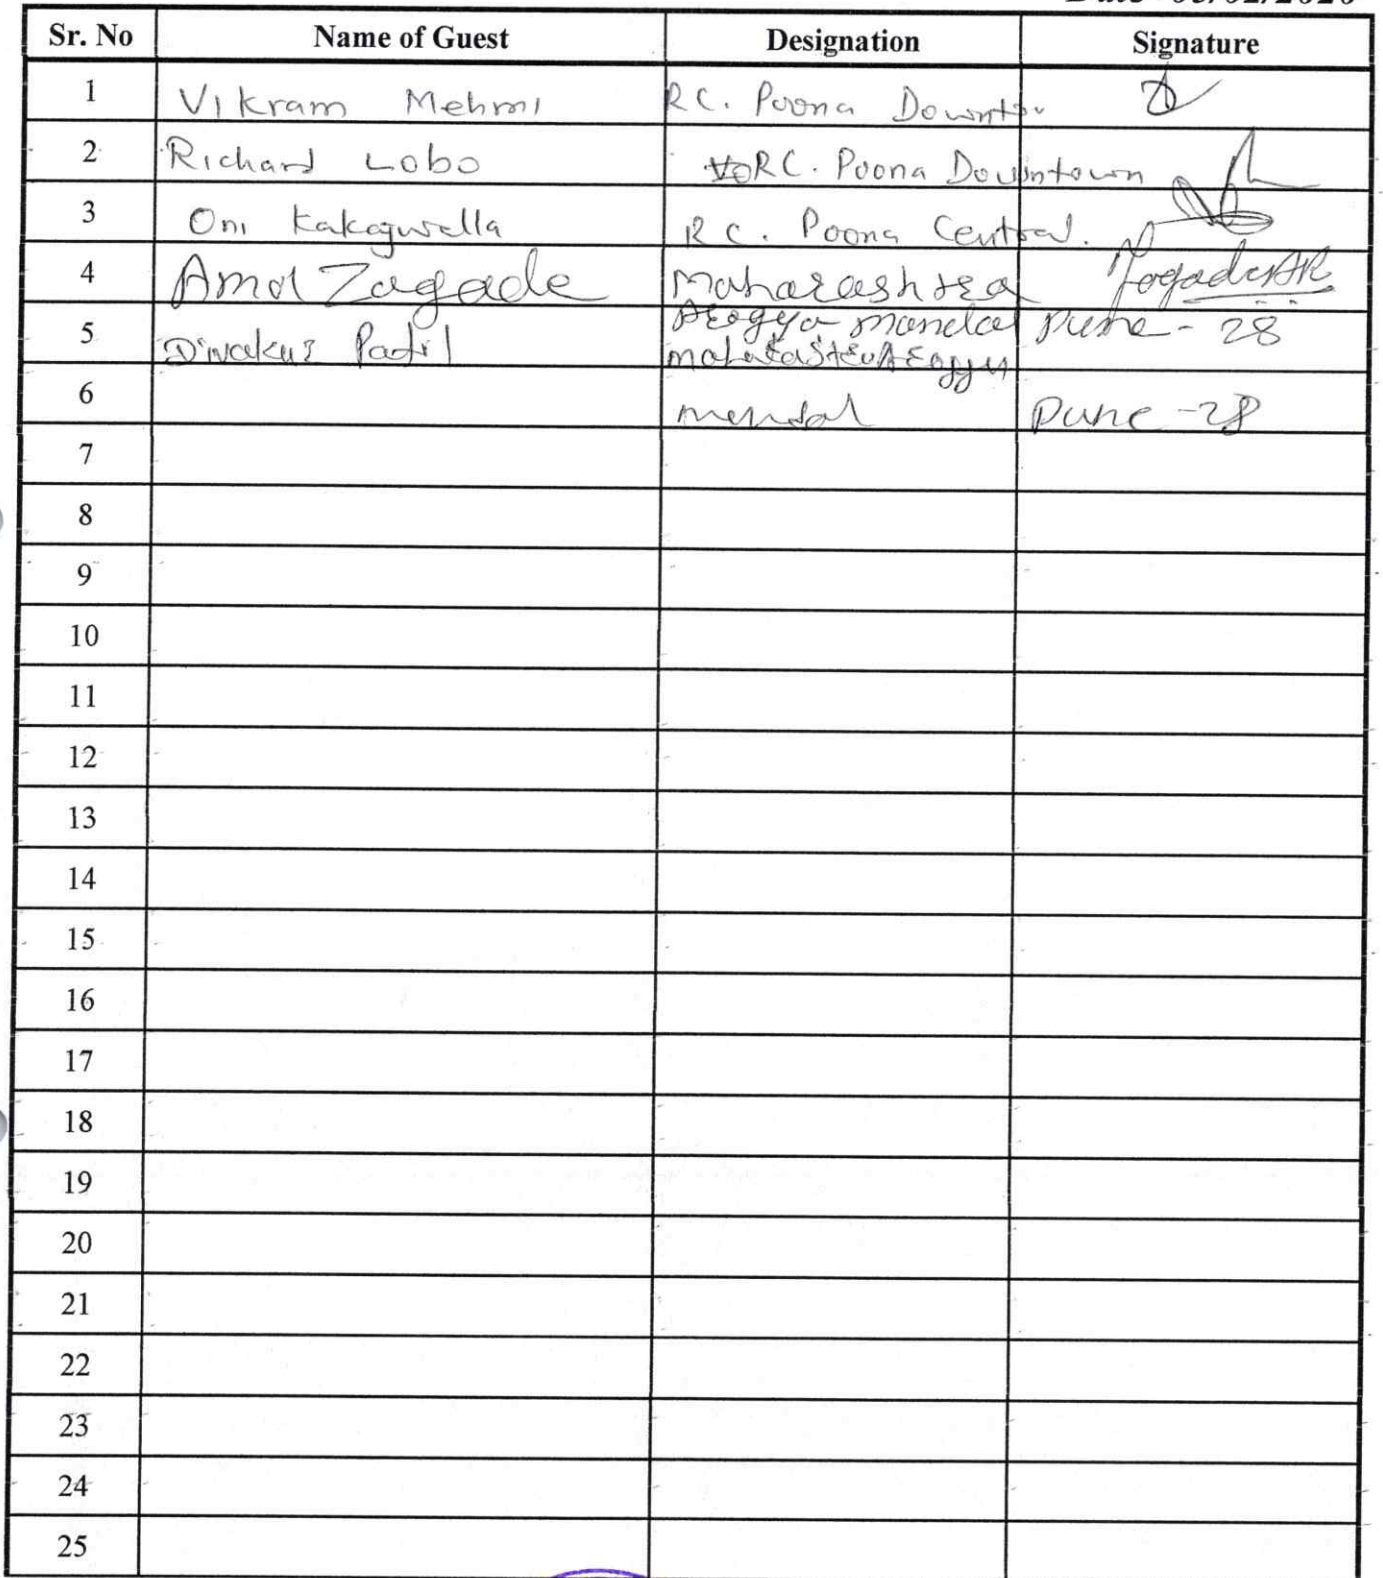 Sr. No Name of Guest Designation Signature
1 Vikram Mehmi R C. Poona Downtow
2 Richard Lobo RC. Poona Downtown
3 Oni Kakajiwalla R C. Poona Central.
4 Amol Zagade Maharashtra ZogadeAR
Arogya mandal Pune - 28
5 Divakar Patil
6 mendal Pune -28
7
8
9
10
11
12
13
14
15
16
17
18
19
20
21
22
23
24
25